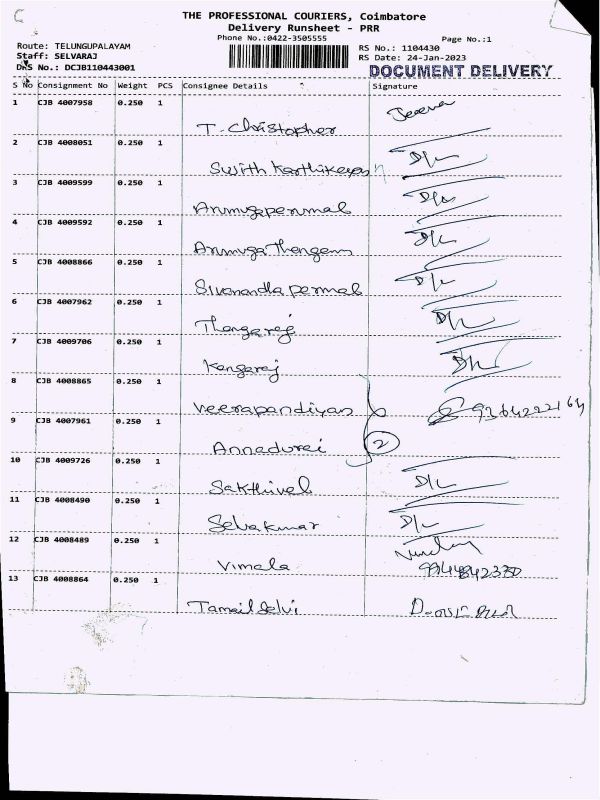 THE PROFESSIONAL COURIERS, Coimbatore
Delivery Runsheet - PRR
Phone No.:0422-3505555
Page No.:1
Route: TELUNGUPALAYAM
Staff: SELVARAJ
DRS No.: DCJB110443001
RS No.: 1104430
RS Date: 24-Jan-2023
DOCUMENT DELIVERY
S No Consignment No Weight PCS Consignee Details Signature
1 CJB 4007958 0.250 1
T. Christopher Jeeva
2 CJB 4008051 0.250 1
Sujith Karthikeyan D/L
3 CJB 4009599 0.250 1
Arumugaperumal D/L
4 CJB 4009592 0.250 1
Arumuga Thangam D/L
5 CJB 4008866 0.250 1
Sivanandla permal D/L
6 CJB 4007962 0.250 1
Thangaraj D/L
7 CJB 4009706 0.250 1
Kangaraj D/L
8 CJB 4008865 0.250 1
Veerapandiyan
9 CJB 4007961 0.250 1
Annadurai 2
10 CJB 4009726 0.250 1
Sakthivel D/L
11 CJB 4008490 0.250 1
Selvakumar D/L
12 CJB 4008489 0.250 1
Vimala
13 CJB 4008864 0.250 1
Tamailselvi